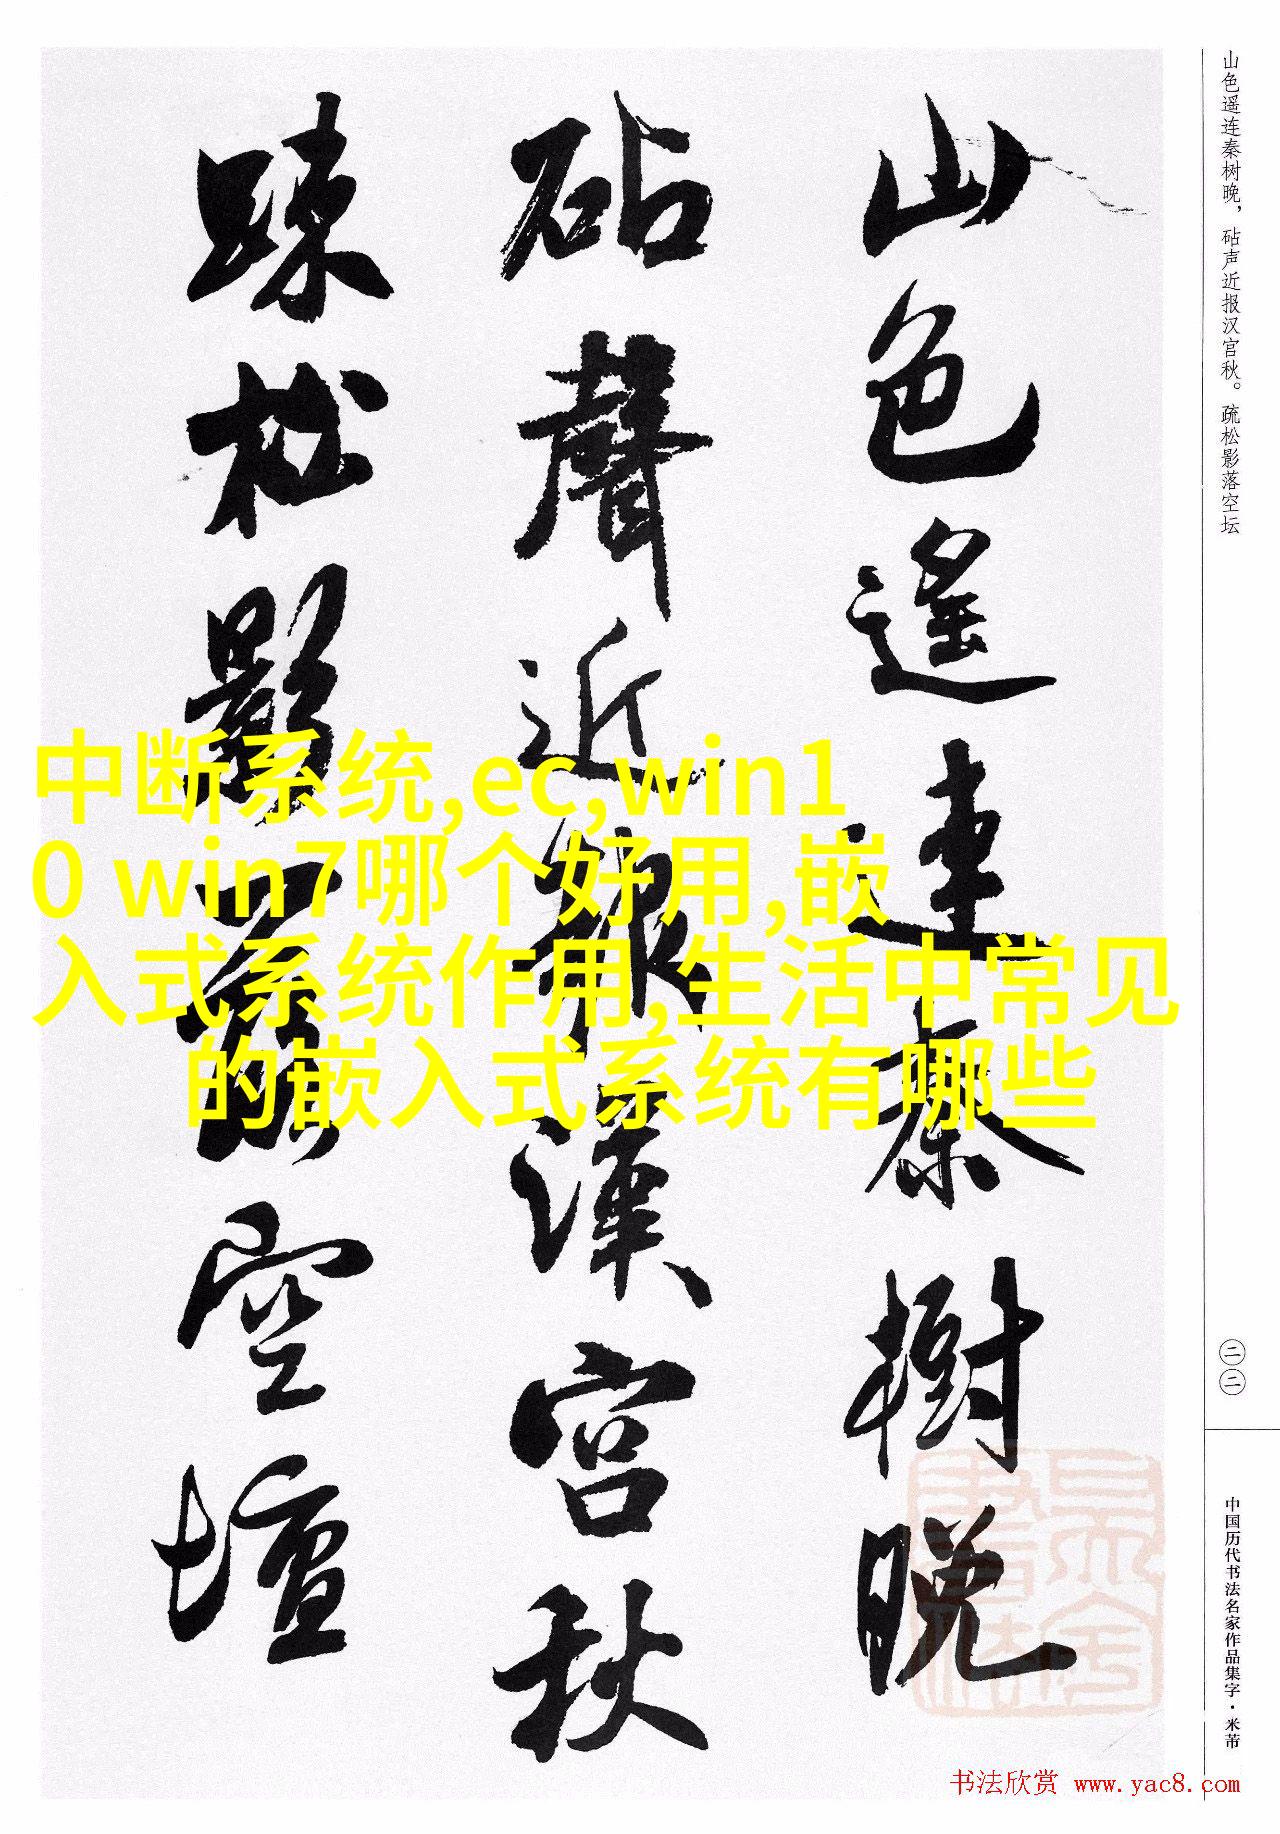 山色遥连秦树晚，砧声近报汉宫秋。疏松影落空坛
山色遙連秦樹晚
砧聲近報漢宮秋
踈松影落空壇
中断系统,ec,win1
0 win7哪个好用,嵌
入式系统作用,生活中常见
的嵌入式系统有哪些
二二
中国历代书法名家作品集字·米芾
书法欣赏 www.yac8.com